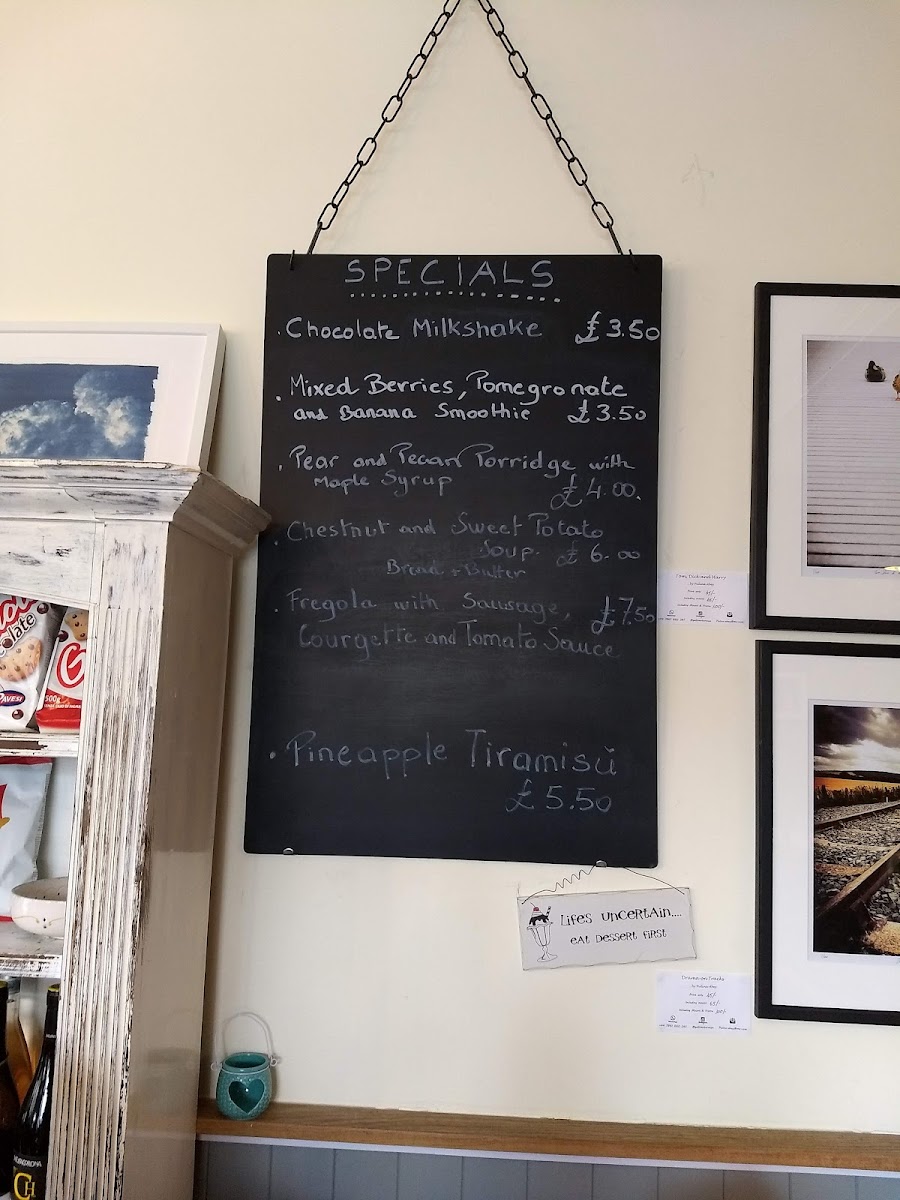 SPECIALS
. Chocolate Milkshake £3.50
. Mixed Berries, Pomegronate
and Banana Smoothie £3.50
. Pear and Pecan Porridge with
Maple Syrup £4.00.
. Chestnut and Sweet Potato
Soup. £6.00
Bread + Butter
. Fregola with Sausage, £7.50
Courgette and Tomato Sauce
. Pineapple Tiramisù
£5.50
Lifes uncertain....
eat dessert first
PAVESI
500g